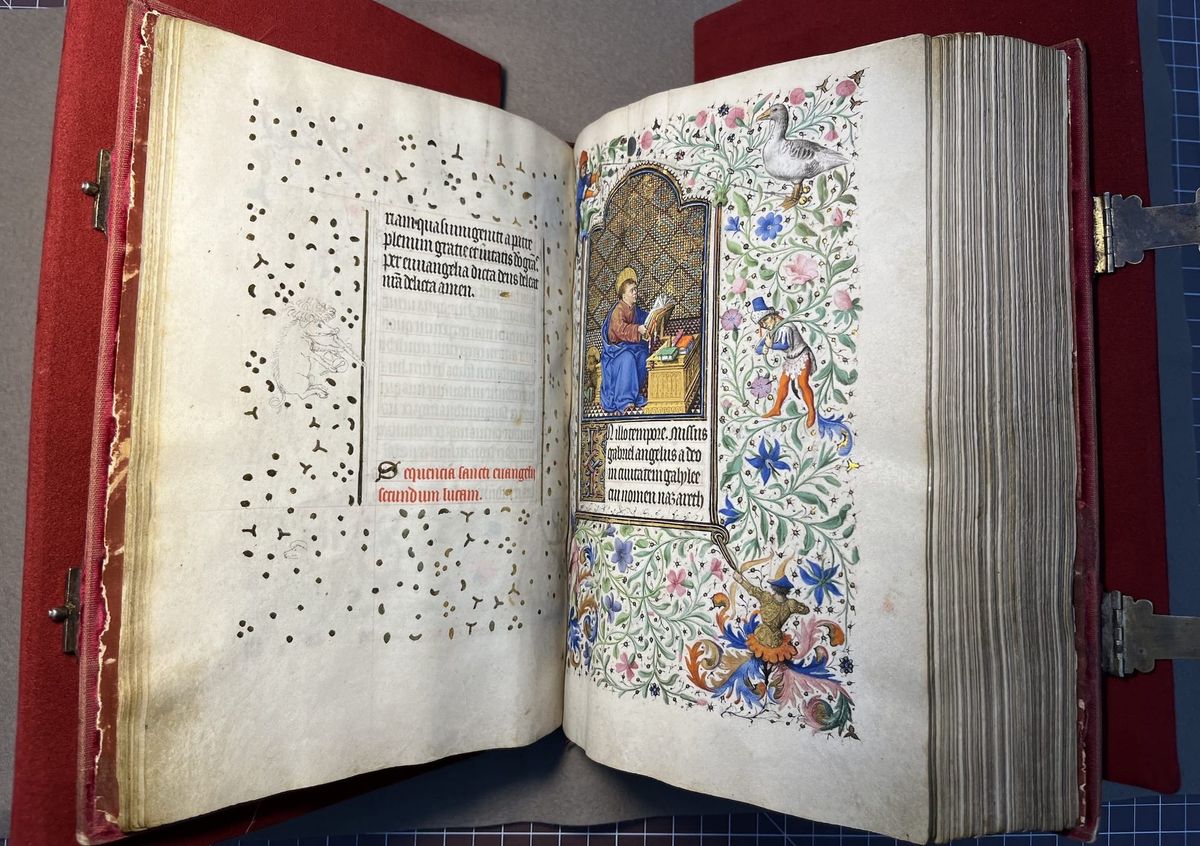 riam quasi unigeniti a patre
plenum gratie et ūitatis do grā.
per euuangelia dicta deus deleāt
nrā delicta amen.
Sequentia sancti euangelii
secundum lucam.
IN illo tempore. Missus
gabriel angelus a deo
in ciuitatem galylee
cui nomen nazareth